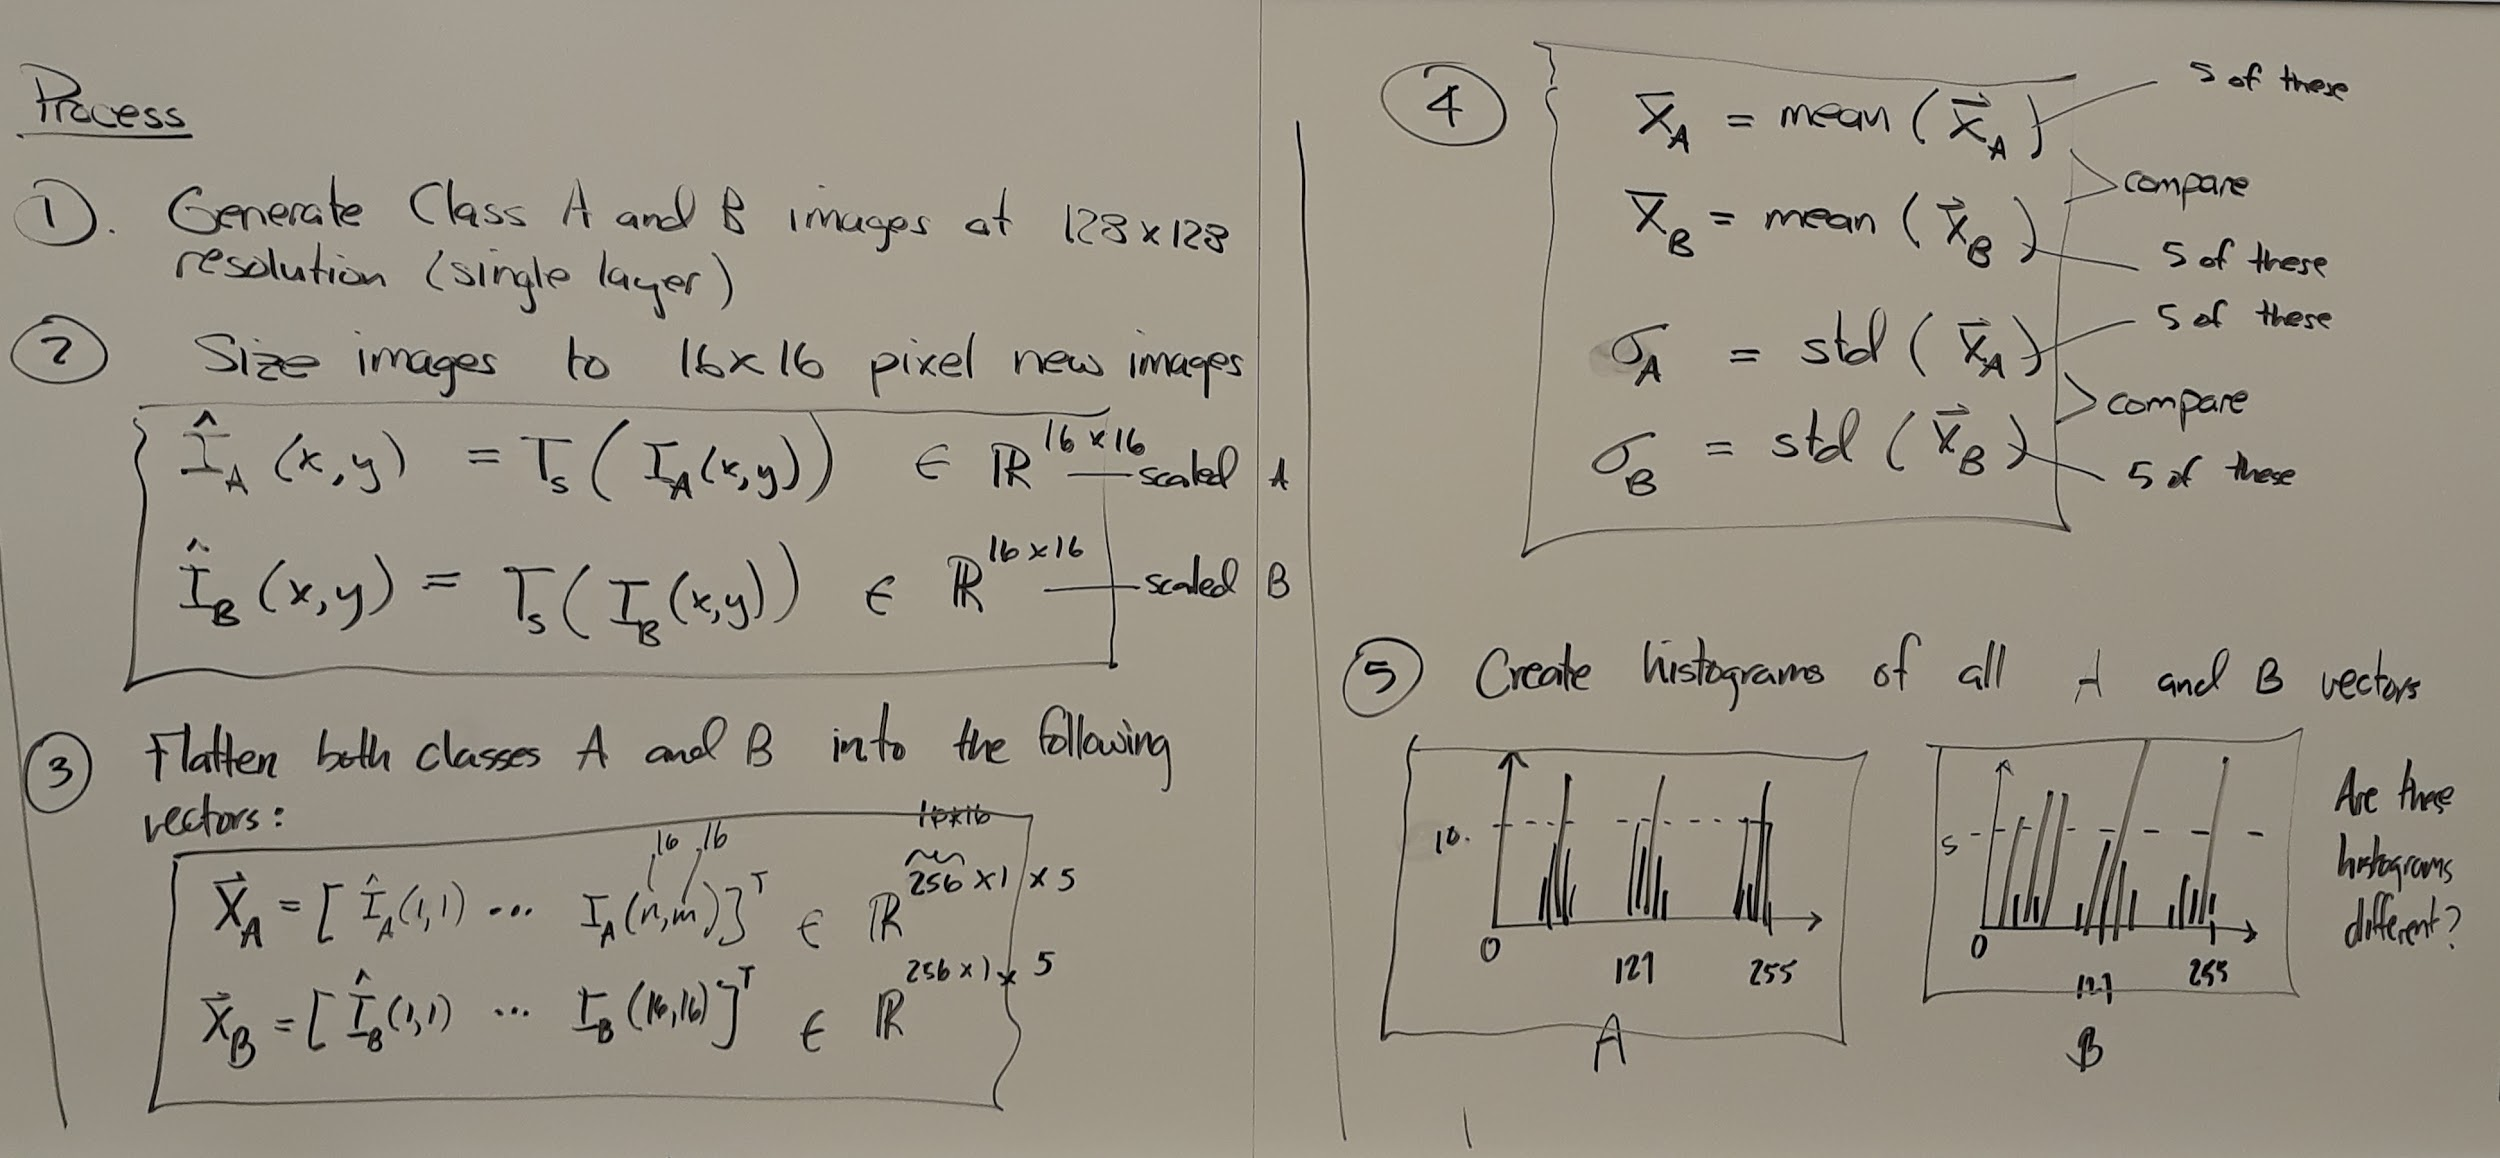 Process
1. Generate Class A and B images at 128x128
resolution (single layer)
2 Size images to 16x16 pixel new images
Î_A (x,y) = T_s (I_A(x,y)) ∈ ℝ^16x16 — scaled A
Î_B (x,y) = T_s (I_B(x,y)) ∈ ℝ^16x16 — scaled B
3 Flatten both classes A and B into the following
vectors:
16 16 16x16
X⃗_A = [Î_A(1,1) ... I_A(n,m)]^T ∈ ℝ^256x1 x 5
X⃗_B = [Î_B(1,1) ... I_B(16,16)]^T ∈ ℝ^256x1 x 5
4
X̄_A = mean (X⃗_A) 5 of these
compare
X̄_B = mean (X⃗_B) 5 of these
σ_A = std (X⃗_A) 5 of these
compare
σ_B = std (X⃗_B) 5 of these
5 Create histograms of all A and B vectors
10
0 127 255
A
5
0 127 255
B
Are these
histograms
different?